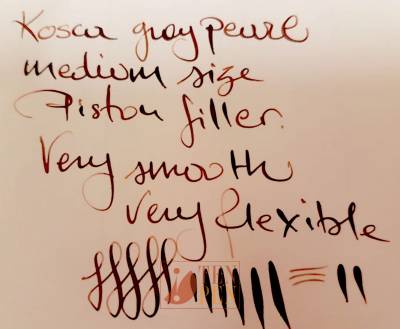 Kosca gray pearl
medium size
Piston filler.
Very smooth
very flexible